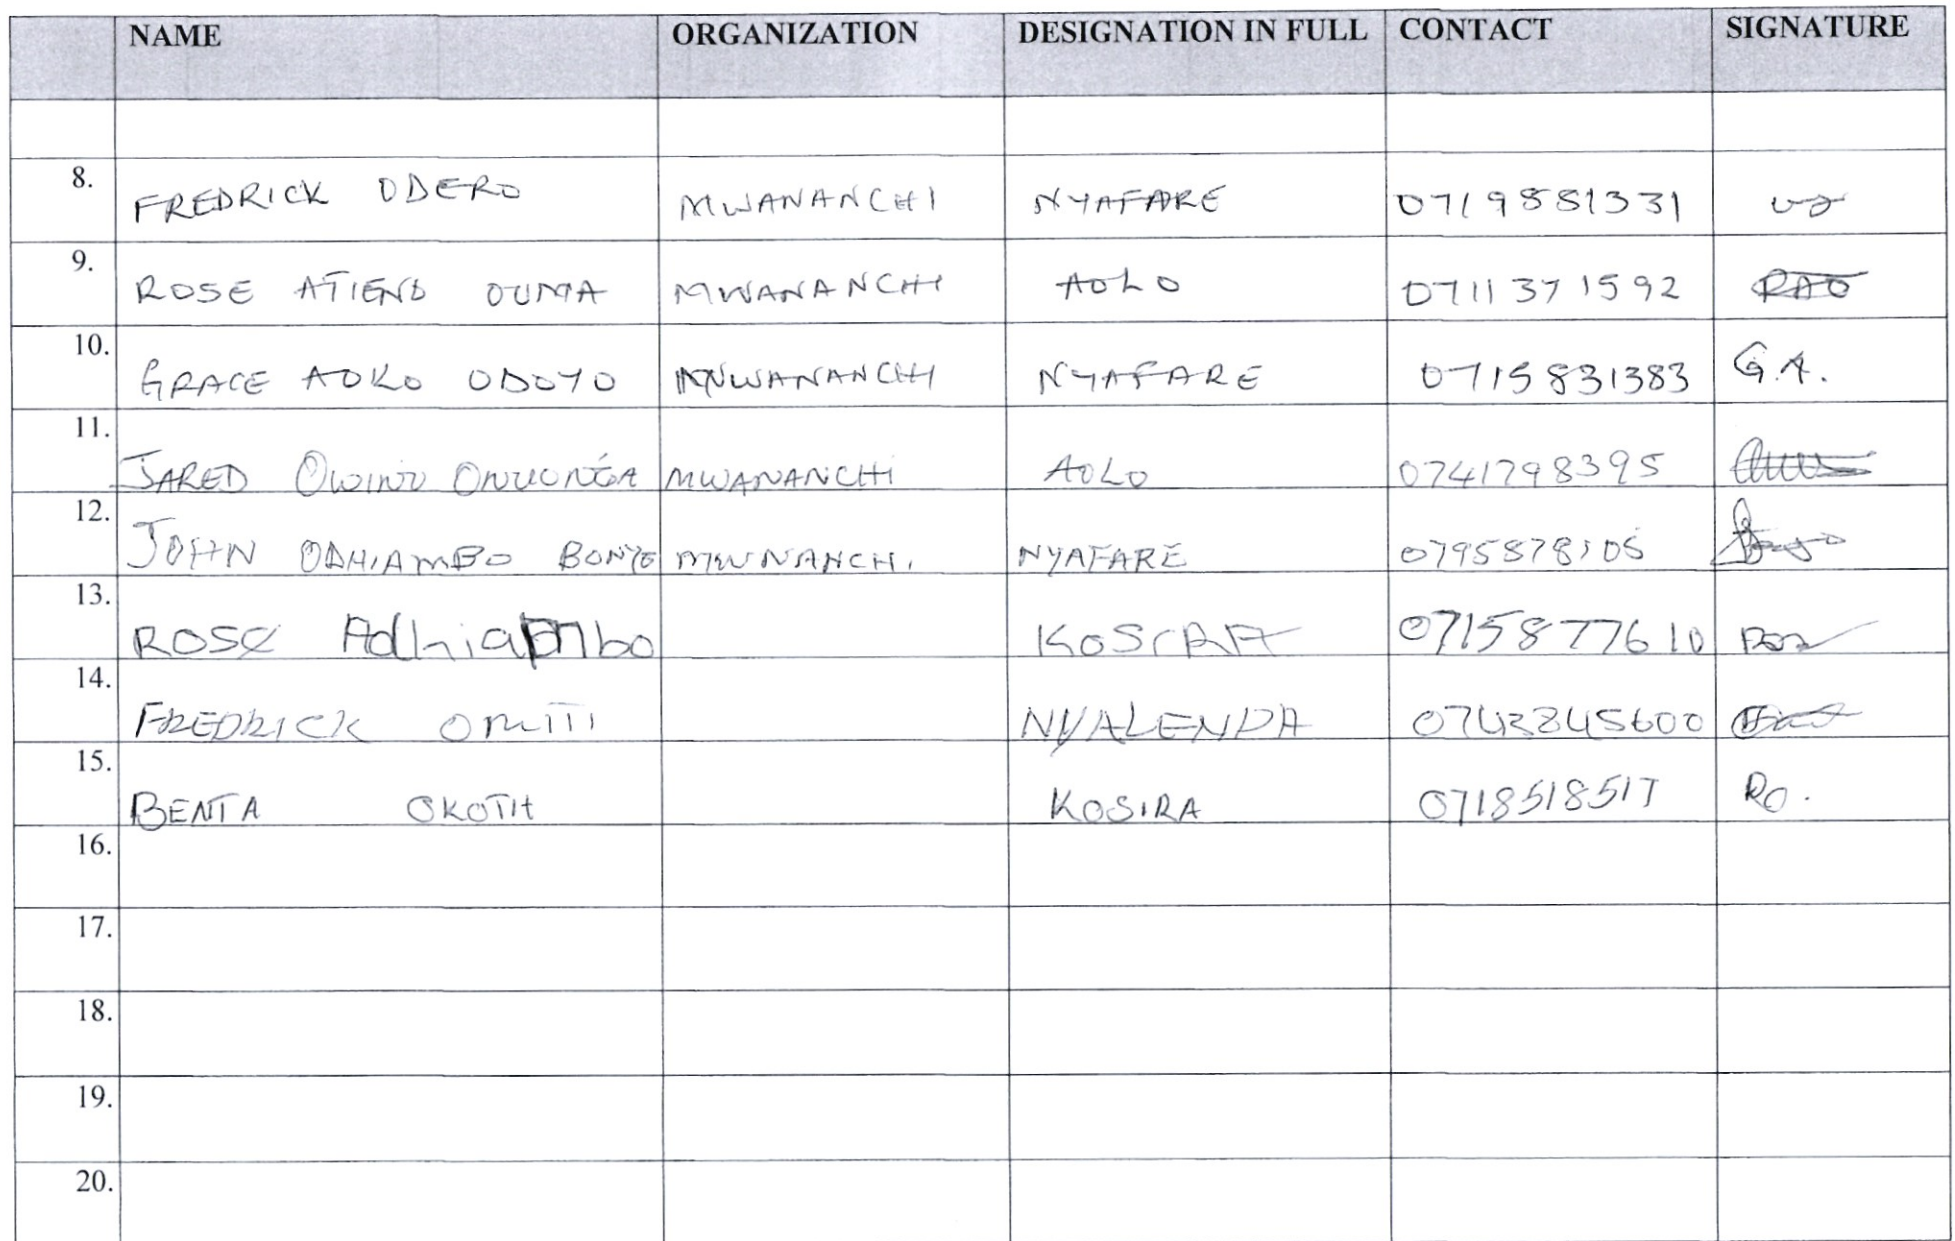 NAME ORGANIZATION DESIGNATION IN FULL CONTACT SIGNATURE
8. FREDRICK ODERO MWANANCHI NYAFARE 0719881331
9. ROSE ATIENO OUMA MWANANCHI AOLO 0711371592 RAO
10. GRACE AOKO ODOYO MWANANCHI NYAFARE 0715831383 G.A.
11. JARED OWINO ONUONGA MWANANCHI AOLO 0741798395
12. JOHN ODHIAMBO BONYO MWNANCHI NYAFARE 0795878105
13. ROSE Adhiambo KOSIRA 0715877610
14. FREDRICK OMITI NYALENDA
15. BENTA OKOTH KOSIRA 0718518517 RO.
16.
17.
18.
19.
20.